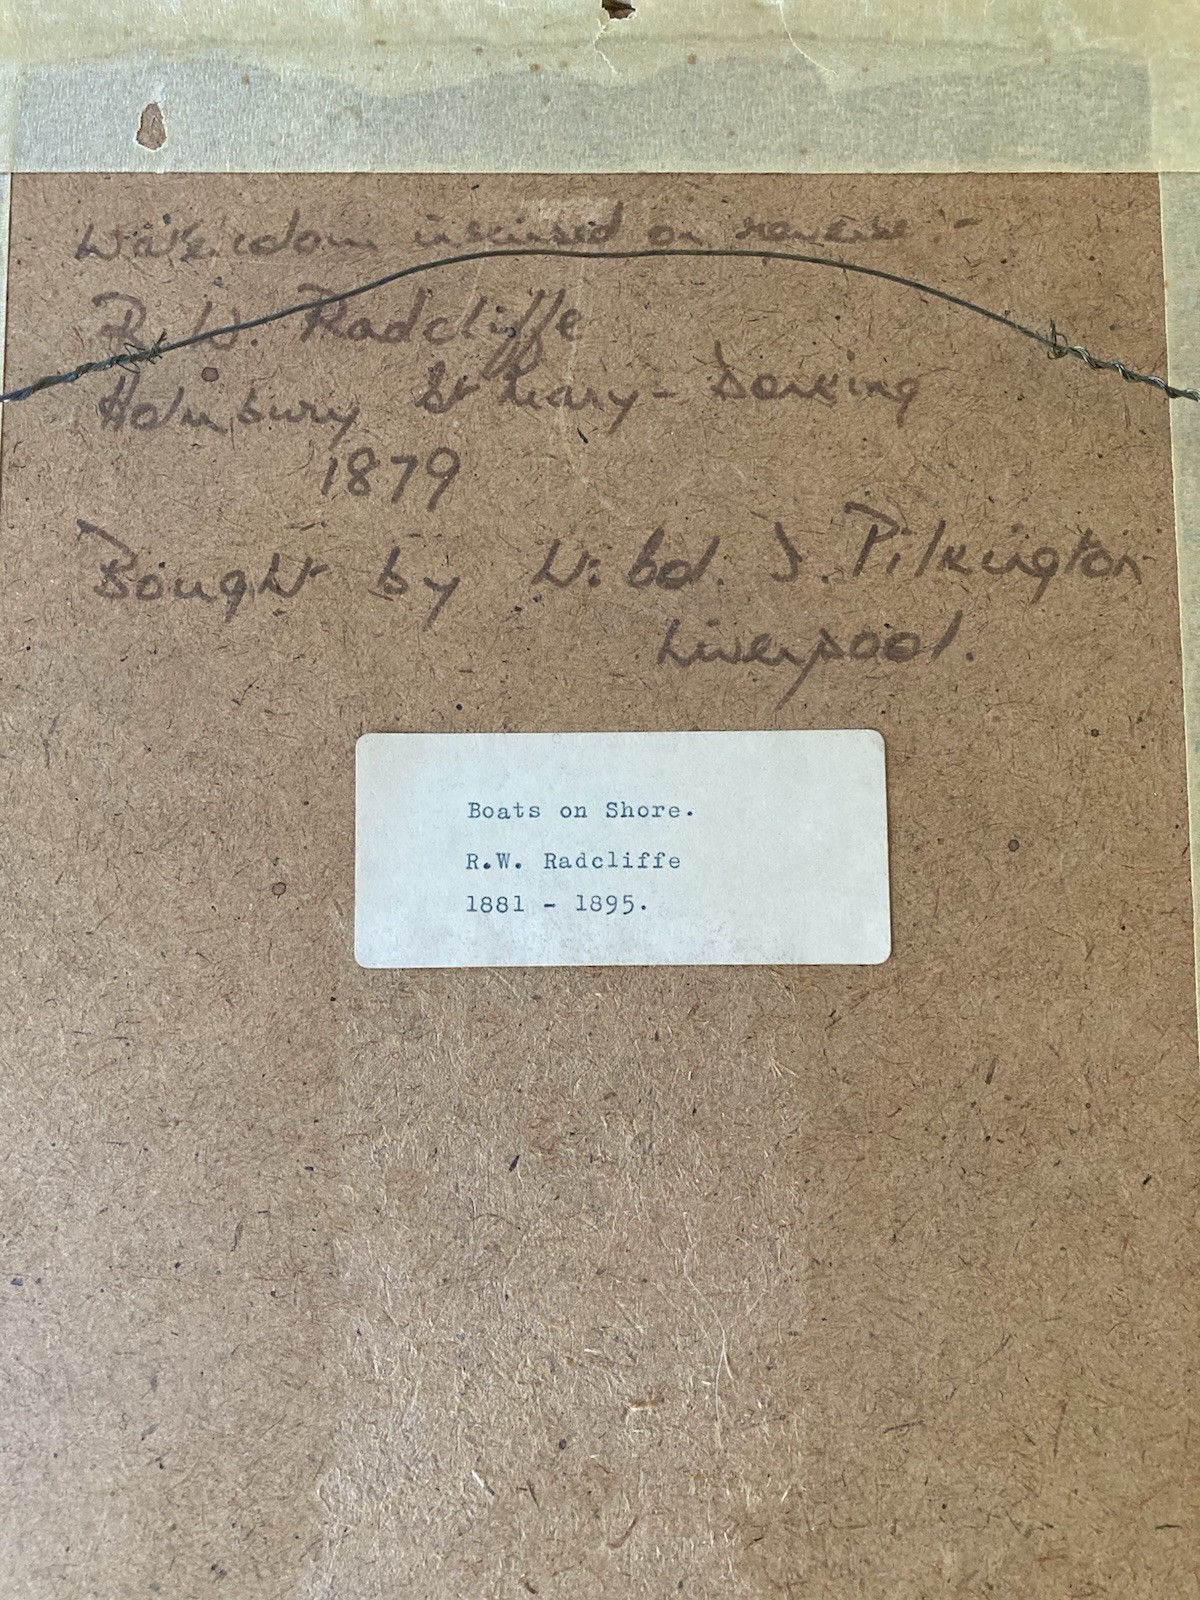 Watercolour inscribed on reverse -
R. W. Radcliffe
Holmbury St Mary - Dorking
1879
Bought by J. Pilkington
Liverpool.
Boats on Shore.
R.W. Radcliffe
1881 - 1895.